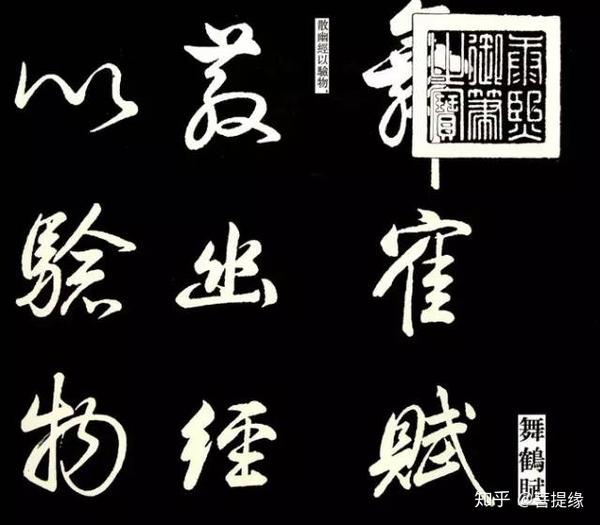 舞鶴賦
康熙御筆之寶
舞鶴賦
散幽經以驗物。
散幽經
以驗物
知乎 @菩提缘